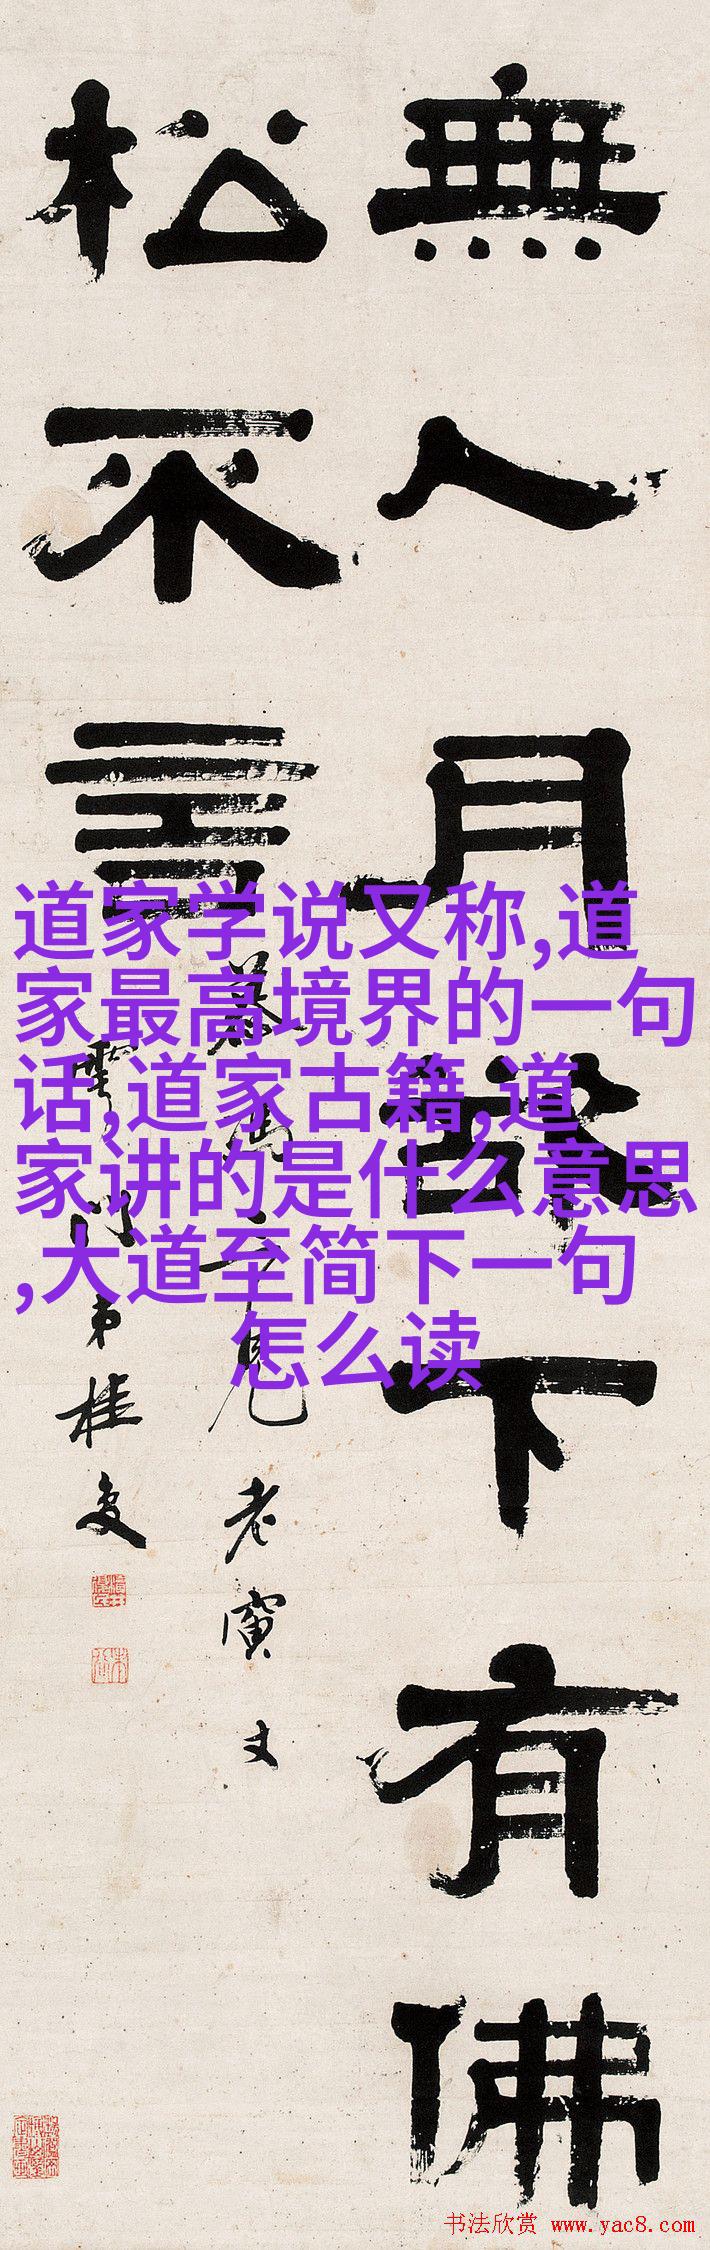 無人月下有佛
松不言
老寅丈
門弟桂
道家学说又称,道
家最高境界的一句
话,道家古籍,道
家讲的是什么意思
,大道至简下一句
怎么读
书法欣赏 www.yac8.com